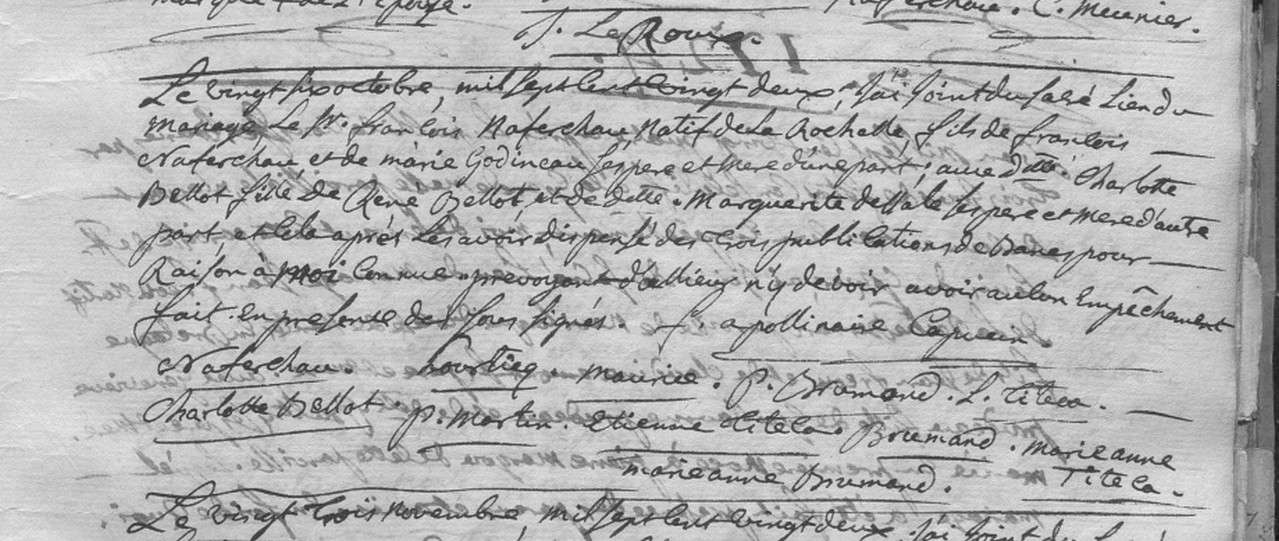 marque + de l'Epouse. Naferchau. C. Meunier.
J. Le Roux.
Le vingt six octobre, mil sept cent vingt deux, J'ai Joint du sacré Lien du
Mariage Le Sr. francois Naferchau Natif de La Rochelle, fils de francois
Naferchau, et de marie Godineau ses pere et mere d'une part; avec Dlle. Charlotte
Bellot fille de René Bellot, et de delle. Marguerite desSale ses pere et mere d'autre
part et cela aprés Les avoir dispensé des trois publications de Banes pour
Raison à moi connue prevoyant d'allieur n'y devoir avoir aucun Empêchement
fait. en presence des sous signés. f. apollinaire Capucin.
Naferchau. hourticq. maurice. P. Bramand. L. Titeca.
Charlotte Bellot. P. Martin. Etienne titeca. Brumand. marie anne
marie anne Brumand. Titeca.
Le vingt trois novembre, mil sept cent vingt deux, J'ai Joint du